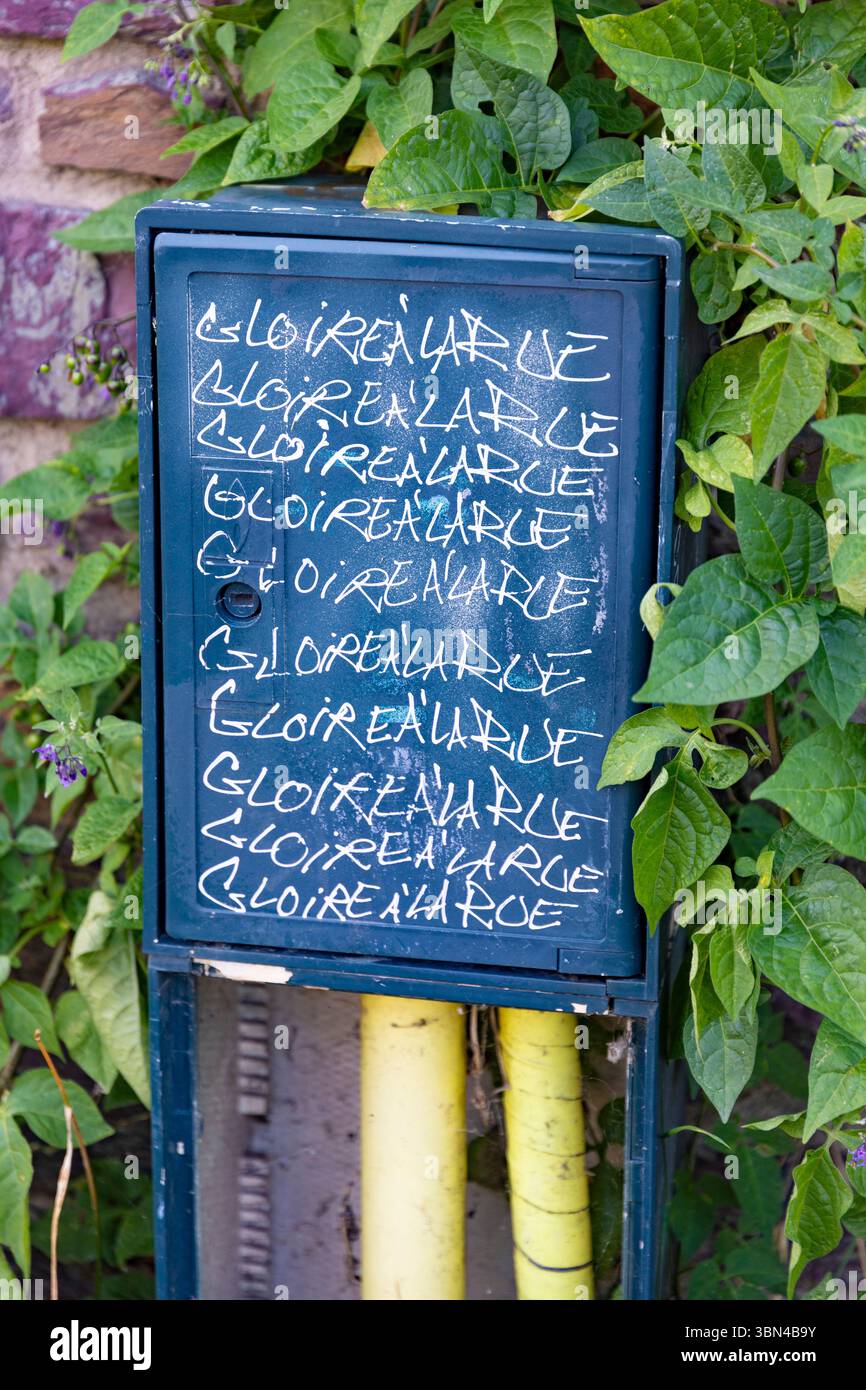 GLOiREÀLARUE
GLOiREÀLARUE
GLOiREÀLARUE
GLOiREÀLARUE
GLOiREÀLARUE
GLOiREÀLARUE
GLOiREÀLARUE
GLOiREÀLARUE
GLOiREÀLARUE
GLOiREÀLARUE
alamy
Image ID: 3BN4B9Y
www.alamy.com